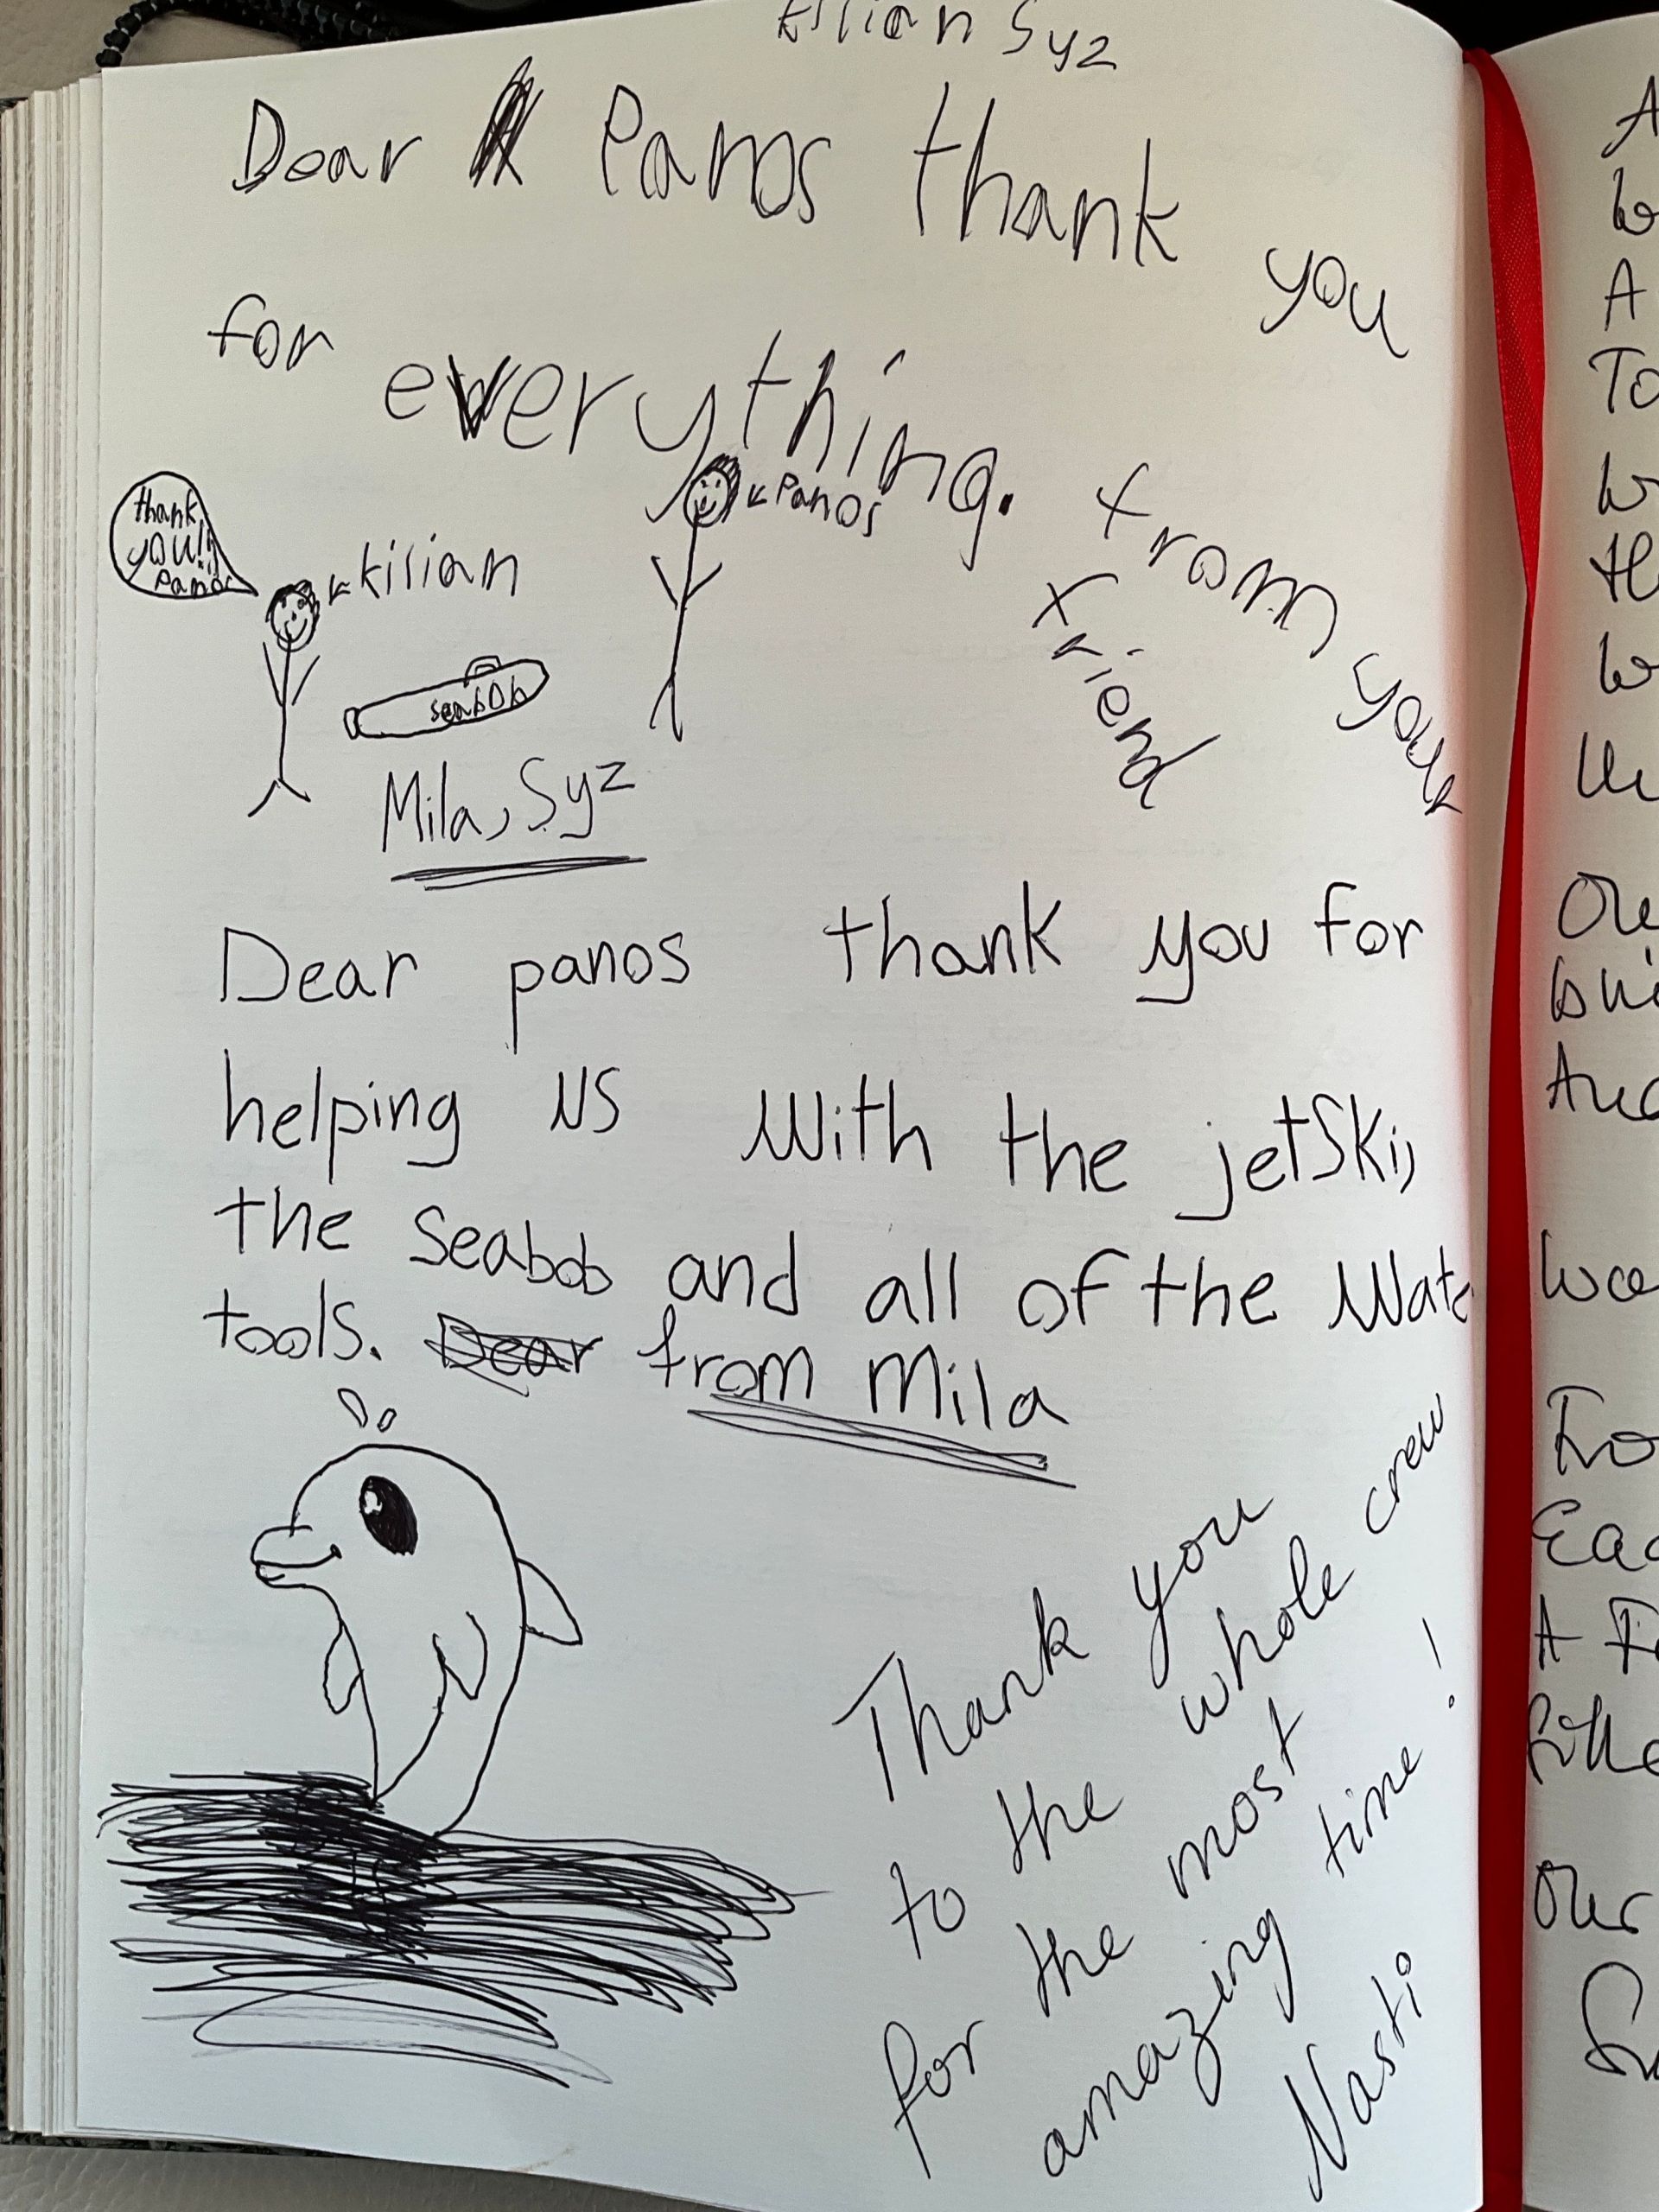 Kilian Syz
Dear Panos thank you
for everything. from your
friend
thank
you!!
Panos
Kilian
Panos
seabob
Mila, Syz
Dear panos thank you for
helping us with the jetski,
the seabob and all of the Wate
tools. Dear from Mila
Thank you
to the whole crew
for the most
amazing time!
Nasti
A
A
To
Our
Our